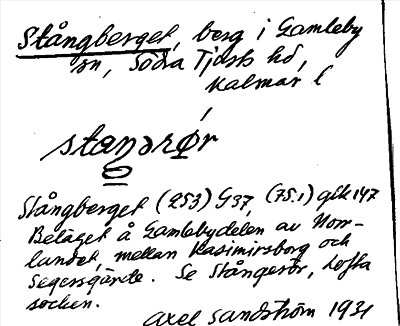 Stångberget, berg i Gamleby
sn, Södra Tjusts hd,
Kalmar l
Stångberget (253) G37, (75.1) gek 147
Beläget å Gamlebydelen av Norr-
landet, mellan Kasimirsborg och
Segersgärde. Se Stångerör, Lofta
socken.
Axel Sandström 1931